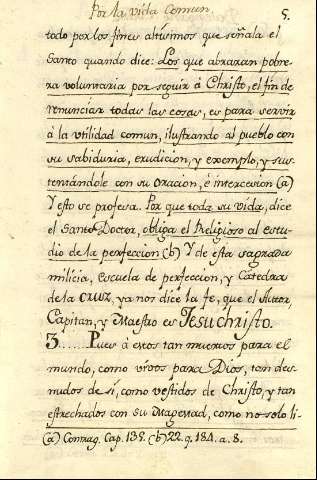 Por la vida Comun. 5.
todo por los fines altisimos que señala el
Santo quando dice: Los que abrazan pobre-
za voluntaria por seguir à Christo, el fin de
renunciar todas las cosas, es para servir
à la utilidad comun, ilustrando al pueblo con
su sabiduria, erudicion, y exemplo, y sus-
tentándole con su oracion, è intercesion (a)
Y esto se profesa. Por que toda su vida, dice
el Santo Doctor, obliga el Religioso al estu-
dio de la perfeccion (b) Y de esta sagrada
milicia, escuela de perfeccion, y Càtedra
de la cruz, ya nos dice la fe, que el Autor,
Capitan, y Maestro es Jesuchristo.
3......Pues à estos tan muertos para el
mundo, como vivos para Dios, tan des-
nudos de sí, como vestidos de Christo, y tan
estrechados con su Magestad, como no solo li-
(a) Contrag. Cap. 135. (b) 22. q. 184. a. 8.